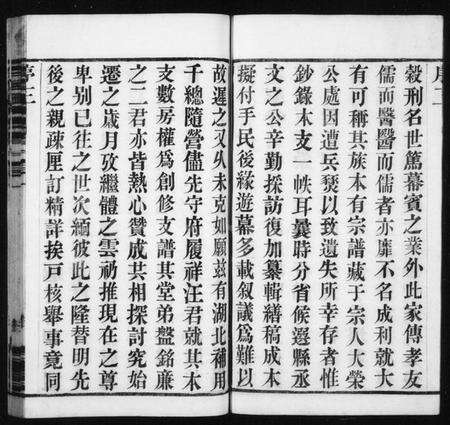 穀刑名世篤幕賓之業外此家傳孝友
儒而醫醫而儒者亦靡不名成利就大
有可稱其族本有宗譜藏于宗人大榮
公處因遭兵燹以致遺失所幸存者惟
鈔錄本支一帙耳曩時分省候選縣丞
文之公辛勤採訪復加纂輯繕稿成本
擬付手民後緣遊幕多載叙議爲難以
故遲之又久未克如願茲有湖北補用
千總隨營儘先守府履祥汪君就其本
支數房權爲創修支譜其堂弟盤銘廉
之二君亦皆熱心贊成共相探討究始
遷之歲月攷繼體之雲礽推現在之尊
卑别已往之世次緬彼此之隆替明先
後之親疎厘訂精詳挨戸核舉事竟同
序三